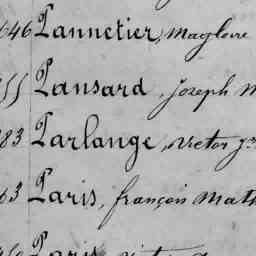 646 Pannetier, Magloire
55 Pansard, Joseph M
83 Parlange, Victor J
63 Paris, françois Math
Paris